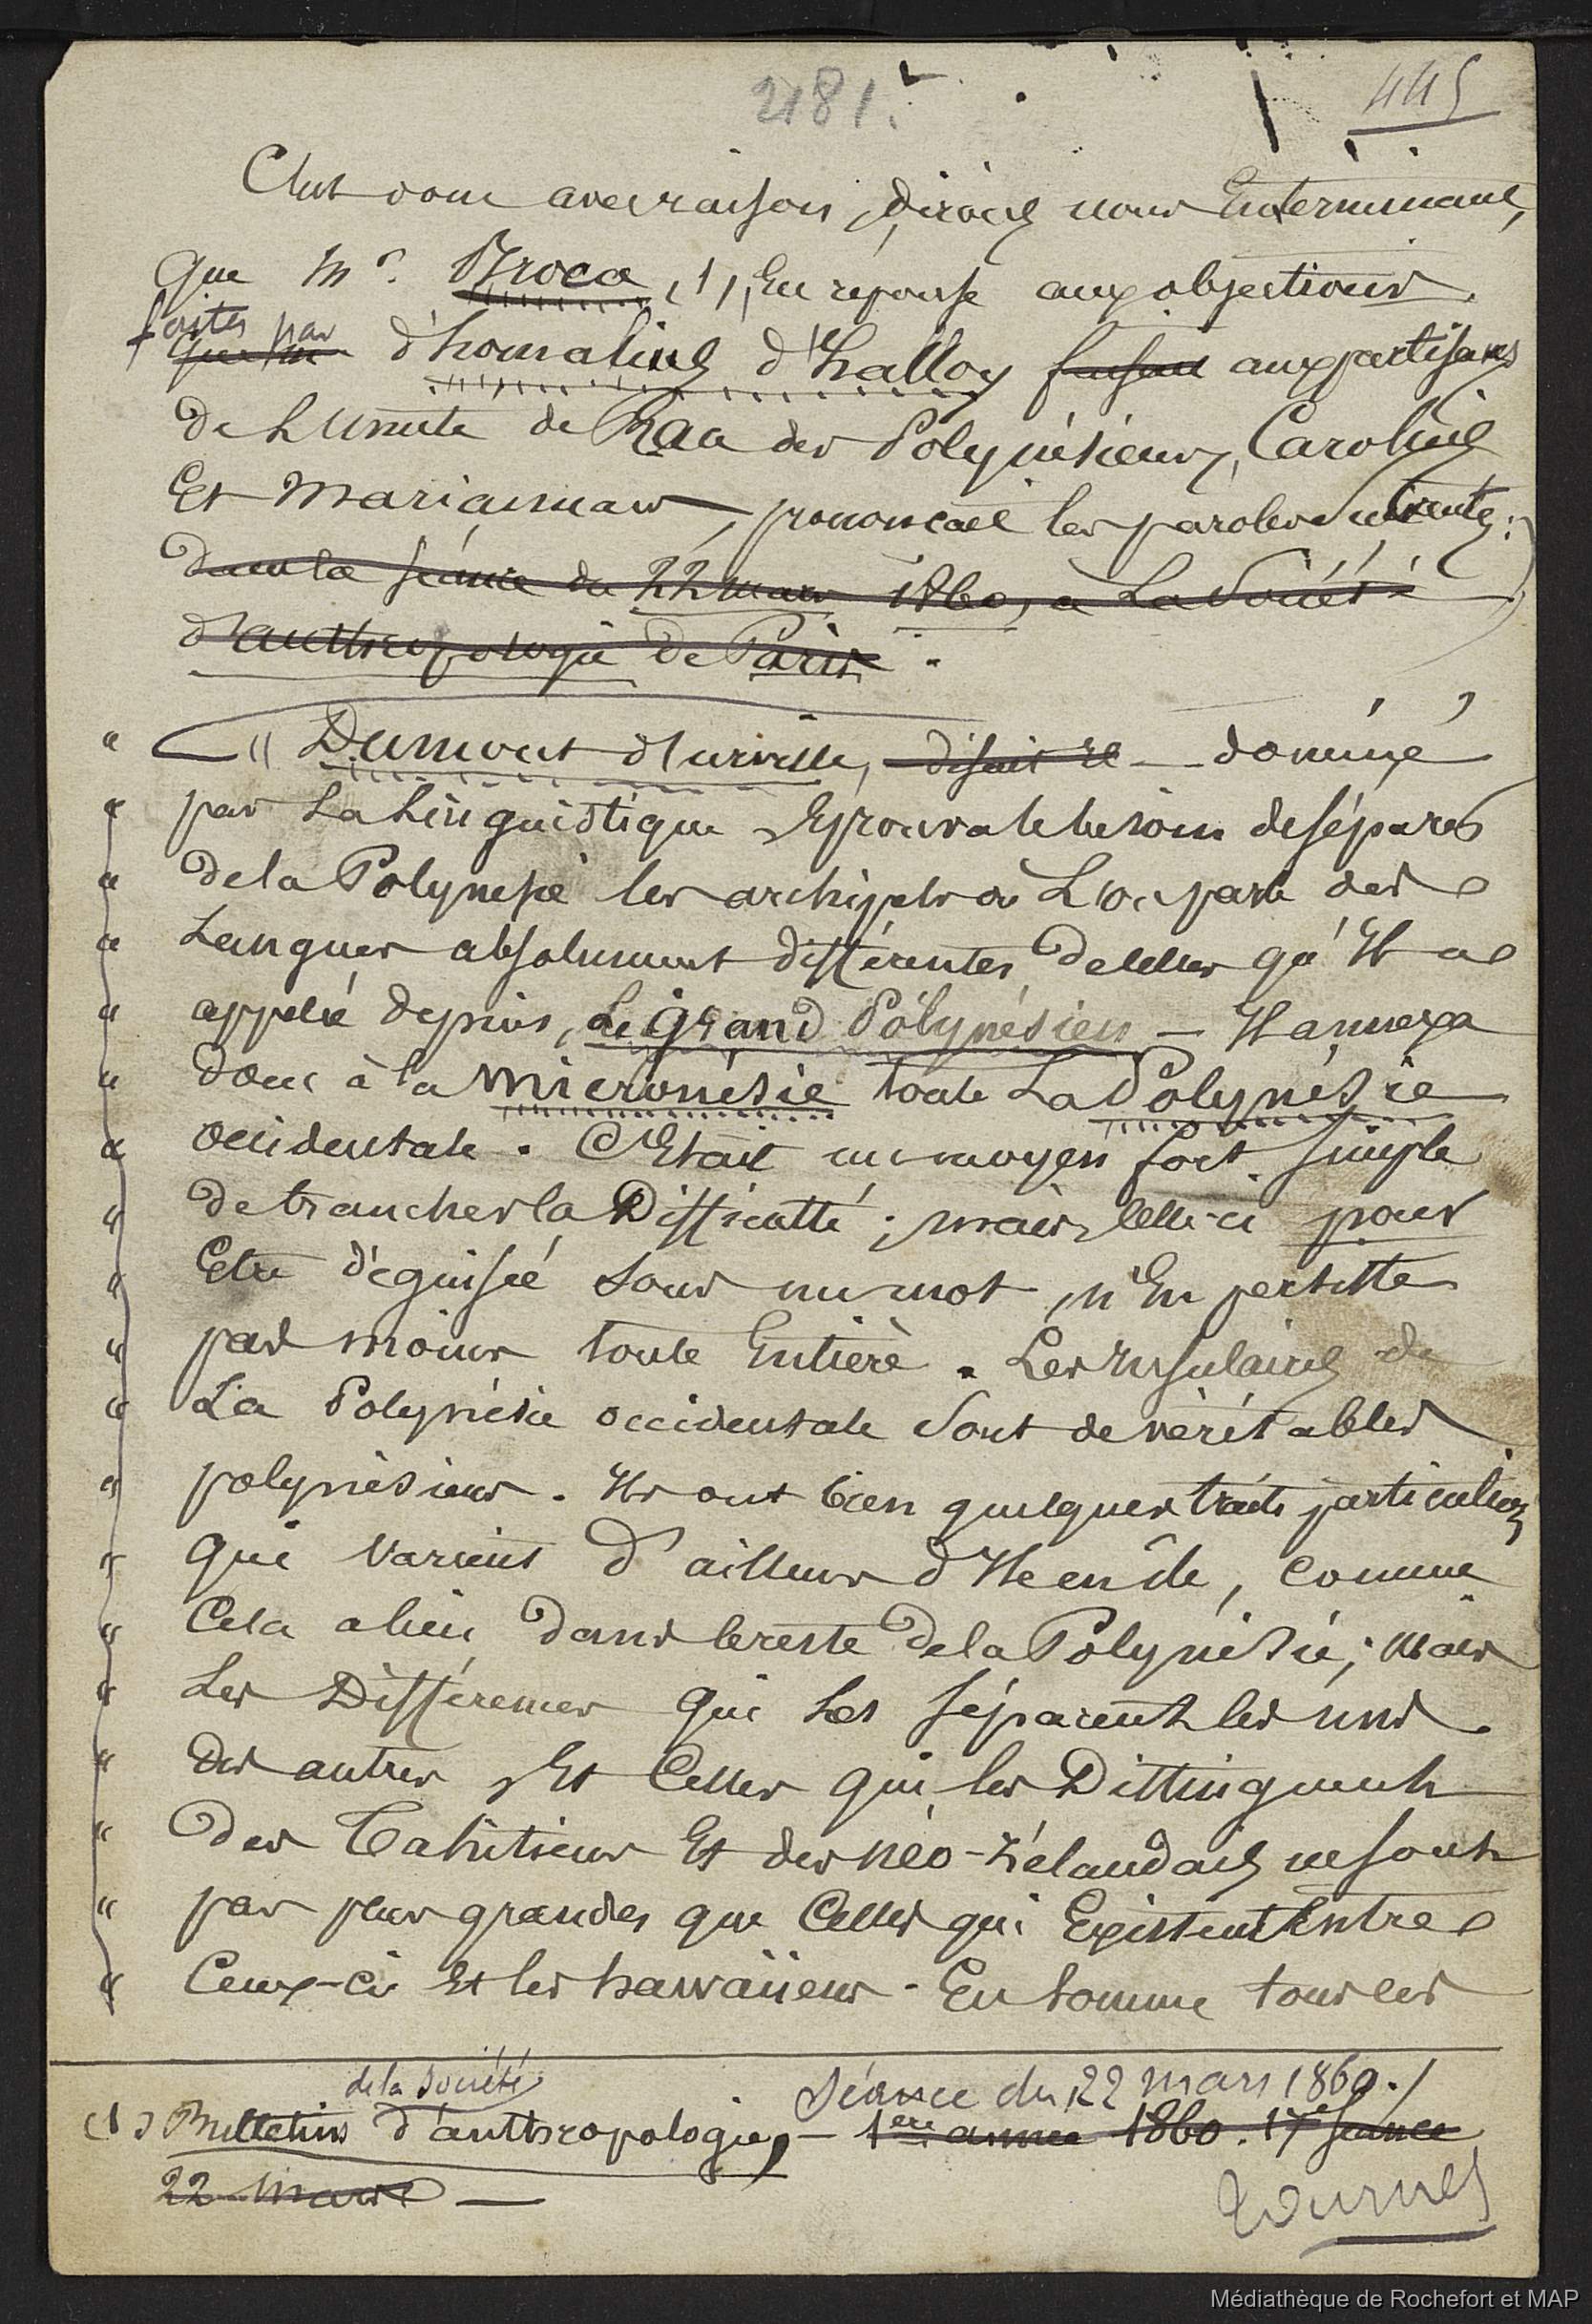 281.
445
C'est donc avec raison, dirons nous En terminant,
que Mr. Broca, (1), En réponse aux objections
faites par
que M d'homalius d'halloy faisait aux partisans
de L'unité de Race des Polynésiens, Carolins
Et Mariannais, prononçait les paroles suivantes:
dans la séance du 22 mars 1860, à La Société
d'anthropologie de Paris.
" « Dumont d'urville, disait il — dominé
" par La Linguistique Eprouva le besoin de séparer
" de la Polynesie les archipels où L'on parle des
" Langues absolument différentes de celles qu'Il a
" appelé depuis, Le Grand Polynésien — Il annexa
" donc à la Micronésie toute La Polynésie
" occidentale. C'Etait un moyen fort simple
" de trancher la Difficulté; mais celle-ci pour
" Etre déguisée sous un mot, n'En persiste
" pas moins toute Entière. Les Insulaires de
" La Polynésie occidentale sont de véritables
" polynésiens. Ils ont bien quelques traits particuliers
" qui varient d'ailleurs d'Ile en île, comme
" Cela a lieu dans le reste de la Polynésie; mais
" Les Différences qui Les séparent les uns
" des autres, Et Celles qui les Distinguent
" des Tahitiens Et des néo-zélandais ne sont
" pas plus grandes que Celles qui Existent Entre
" Ceux-ci Et les hawaiiens. En somme tous ces
de la Société
Séance du 22 mars 1860./
(1) Bulletins d'anthropologie, — 1ère année 1860. 17e séance
22 mars —
tournez
Médiathèque de Rochefort et MAP